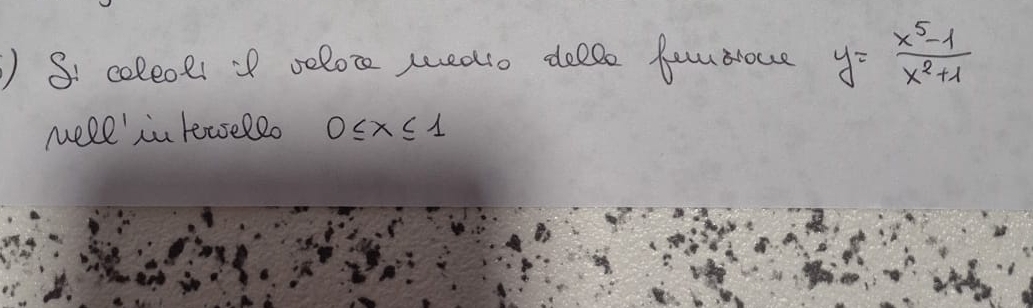 ) Si calcoli il valore medio della funzione y= x⁵-1 / x²+1
nell'intervallo 0≤x≤1